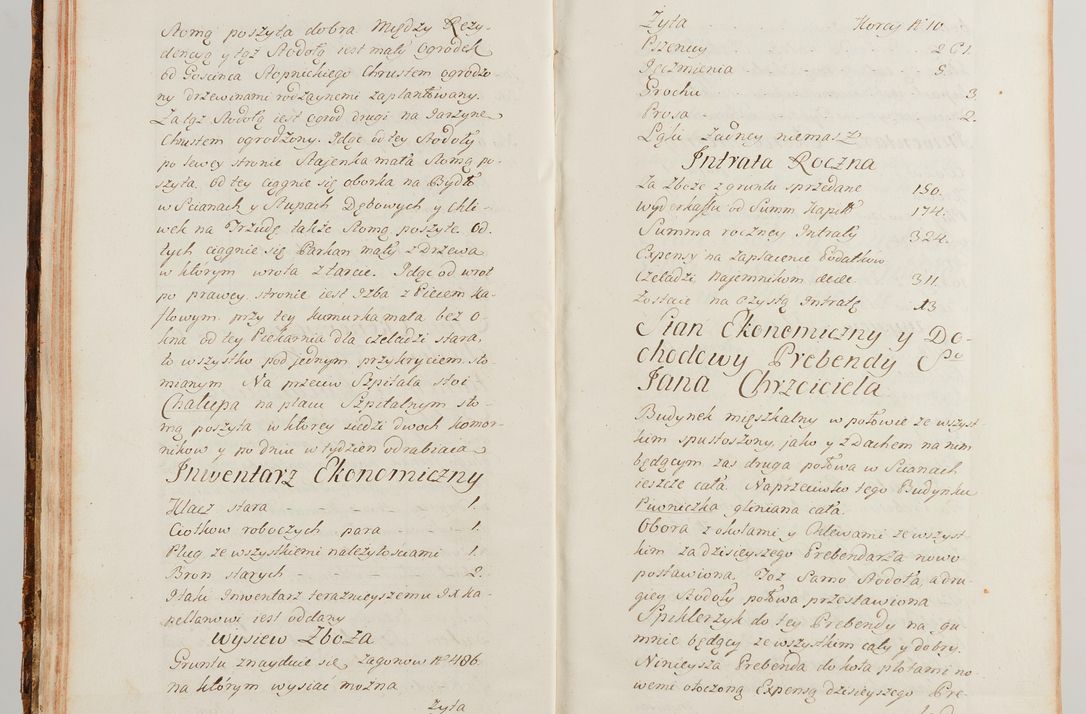 Słomą poszyta dobra Między Rezy-
dencyą y tąż Stodołą iest mały Ogrodek
od Goscinca Stopnickiego Chrustem ogrodzo-
ny drzewinami rodzaynemi zaplantowany.
Za tąż Stodołą iest ogrod drugi na Jarzyne
Chrustem ogrodzony. Idąc od tey Stodoły
po lewey stronie Stajenka mała Słomą po-
szyta. od tey ciągnie się oborka na Bydło
w Scianach y Słupach Dębowych y Chle-
wek na Trzodę także Słomą poszyte. Od
tych ciągnie się Parkan mały z Drzewa
w którym wrota z tarcic. Idąc od wrot
po prawey stronie iest Izba z Piecem Ka-
flowym przy tey kumurka mała bez o-
kna od tey Piekarnia dla czeladzi stara,
to wszystko pod jednym przykryciem sło-
mianym Na przeciw Szpitala stoi
Chałupa na placu Szpitalnym sło-
mą poszyta w ktorey siedzi dwoch komor-
nikow y po dniu w tydzien odrabiaią
Inwentarz Ekonomiczny
Klacz stara - - - 1.
Ciołkow roboczych para - - - 1.
Pług ze wszystkiemi należytosciami 1.
Bron starych - - - - 2.
Itaki Inwentarz teraznieyszemu JX Ka-
pellanowi iest oddany
Wysiew Zboża
Gruntu znayduie się Zagonow N 486
na którym wysiać można
Żyta
Żyta Korcy N 10
Pszenicy 2 G 1.
Jęczmienia 5.
Grochu 3.
Prosa 2.
Łąki żadney niemasz
Intrata Roczna
Za Zboże z gruntu sprzedane 150.
Wyderkaffu od Summ Kapitł 174.
Summa roczney Intraty 324.
Expensy na zapłacenie Podatkow
czeladzi Najemnikom 311.
Zostaie na Czystą Intratę 13
Stan Ekonomiczny y Do-
chodowy Prebendy So
Jana Chrzciciela
Budynek mięszkalny w połowie ze wszyst-
kim spustoszony, jako y z Dachem na nim
będącym zas druga połowa w Scianach
ieszcze cała. Naprzeciwko tego Budynku
Piwniczka gliniana cała.
Obora z okołami y Chlewami ze wszyst-
kim za dzisieyszego Prebendarza nowo
postawiona, Toż Samo Stodoła, a dru-
giey Stodoły połowa przestawiona
Spiklerzyk do tey Prebendy na gu-
mnie będący ze wszystkim cały y dobry.
Ninieysza Prebenda do koła płotami no-
wemi otoczona Expensą dzisieyszego Pre-